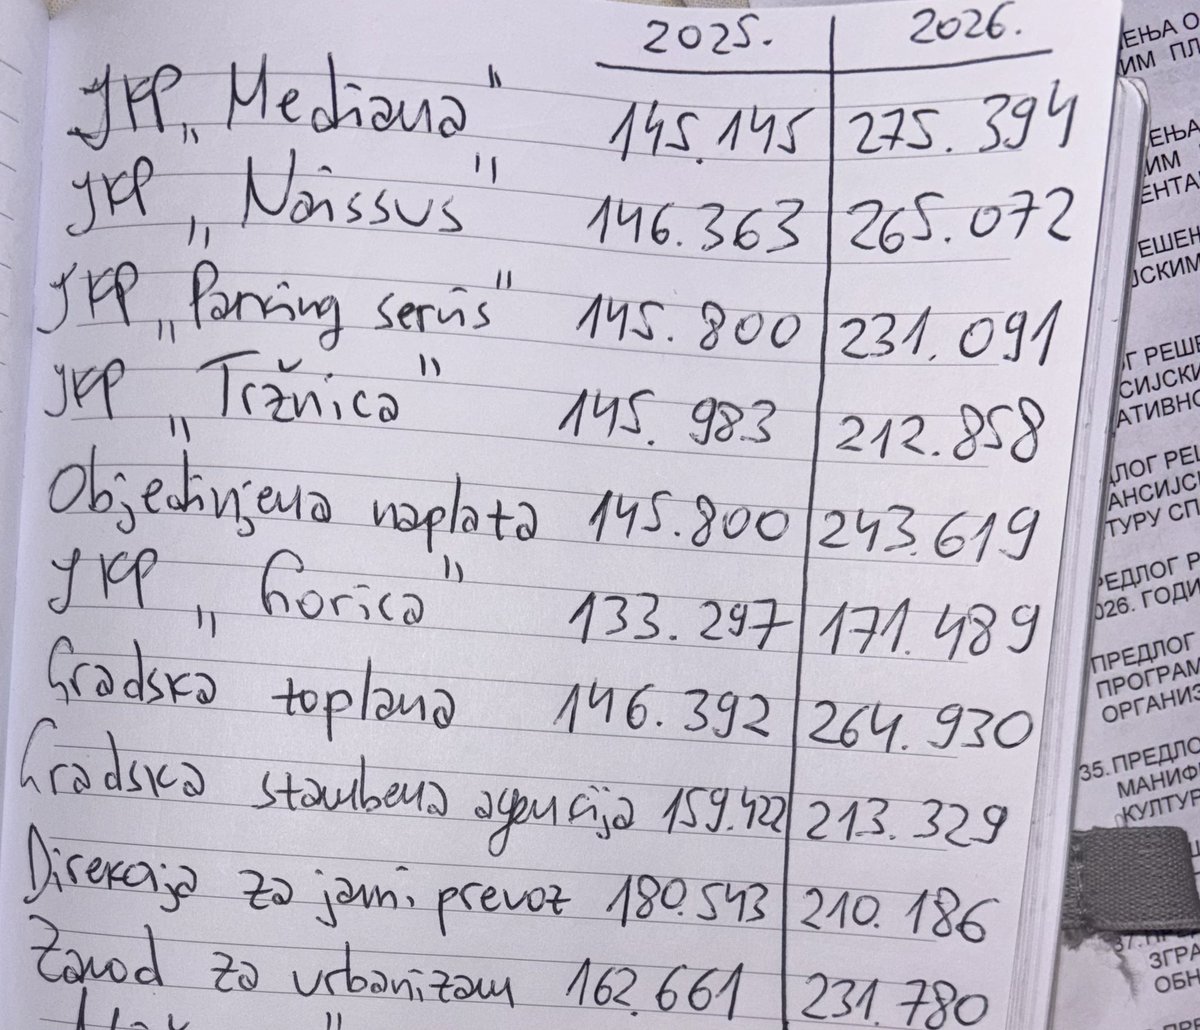 2025. 2026.
JKP „Mediana" 145.145 275.394
JKP „Naissus" 146.363 265.072
JKP „Parking servis" 145.800 231.091
JKP „Tržnica" 145.983 212.858
Objedinjena naplata 145.800 243.619
JKP „Gorica" 133.297 171.489
Gradska toplana 146.392 264.930
Gradska stambena agencija 159.422 213.329
Direkcija za javni prevoz 180.543 210.186
Zavod za urbanizam 162.661 231.780
ЕЊА О
ИМ ПЛ
ЕЊА
ИМ
ЕНТА
РЕШЕН
ЈСКИМ
Г РЕШЕ
СИЈСКИ
АТИВНО
ЛОГ РЕШ
АНСИЈСК
ТУРУ СП
РЕДЛОГ Р
026. ГОДИ
ПРЕДЛОГ
ПРОГРАМ
ОРГАНИЗ
35. ПРЕДЛО
МАНИФ
КУЛТУР
37. ПРЕД
ЗГРА
ОБН